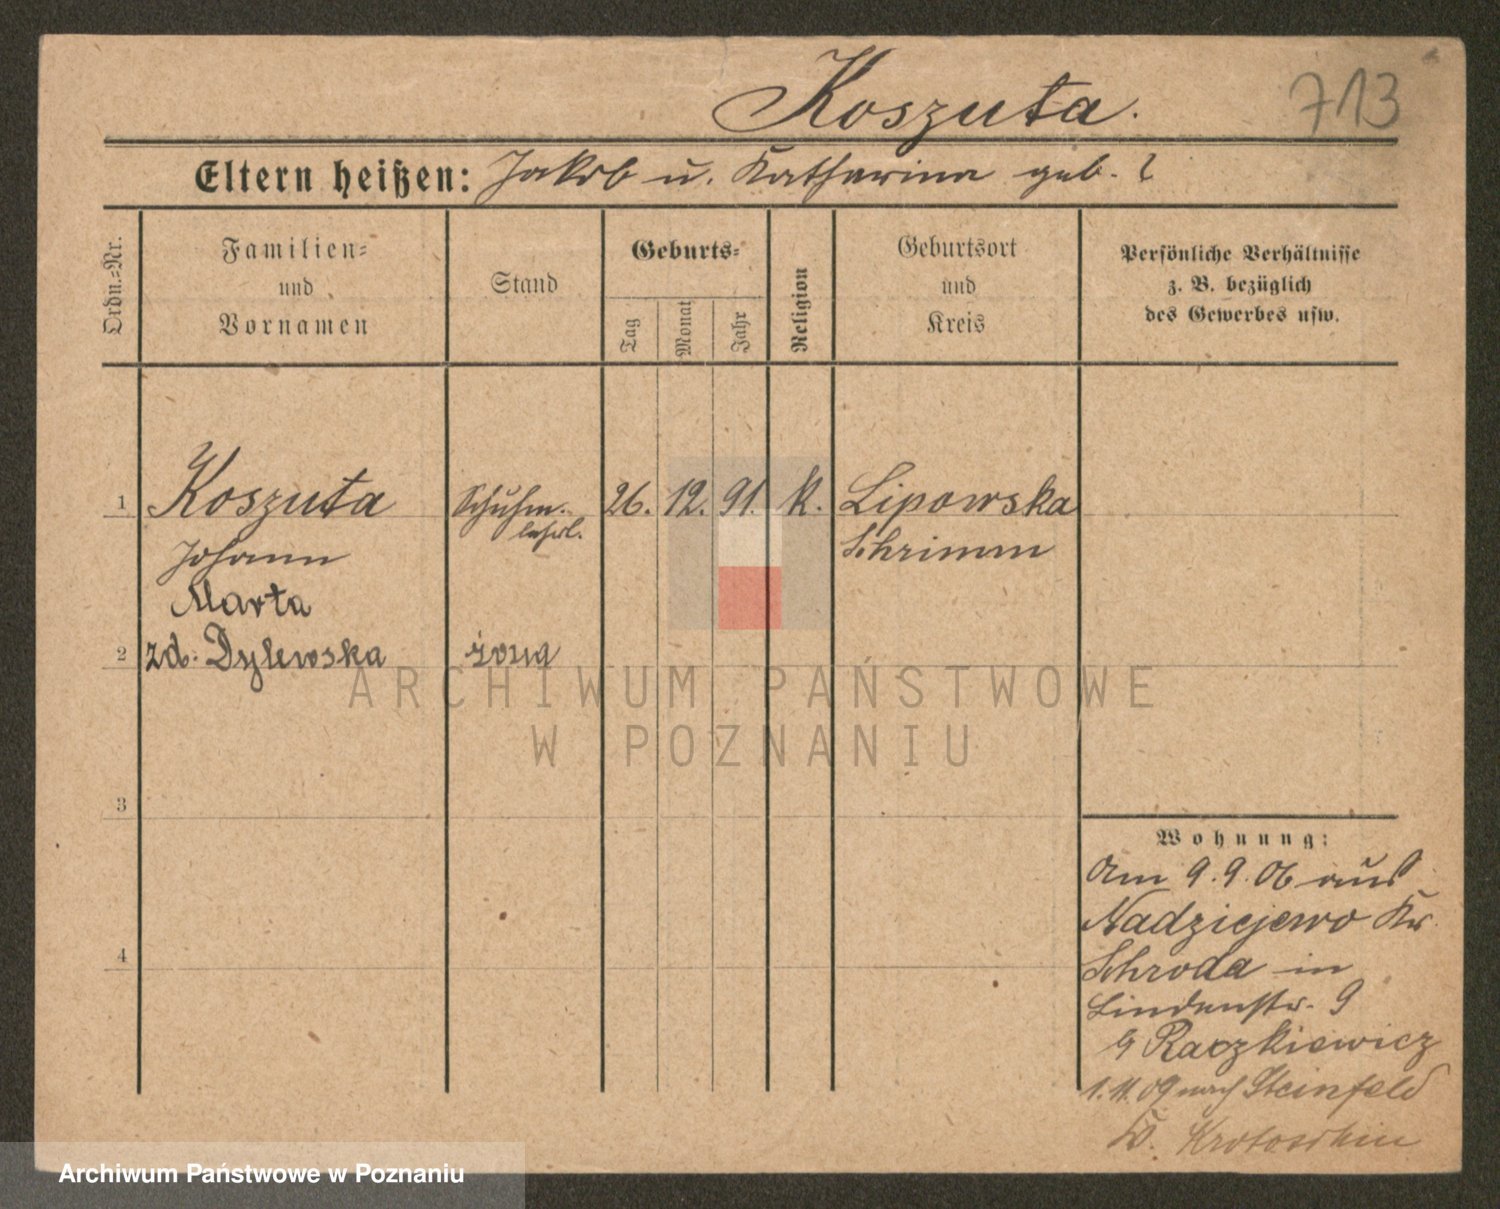 Koszuta.
713
Eltern heißen: Jakob u. Katharina geb. ?
Ordn.=Nr.
Familien=
und
Vornamen
Stand
Geburts=
Tag
Monat
Jahr
Religion
Geburtsort
und
Kreis
Persönliche Verhältnisse
z. B. bezüglich
des Gewerbes usw.
1 Koszuta Schuhm. 26. 12. 91. k. Lipowska
lehrl.
Johann Schrimm
Marta
2 zd. Dylewska żona
ARCHIWUM PAŃSTWOWE
W POZNANIU
3
Wohnung:
Am 9.9.06 aus
Nadziejewo Kr.
4
Schroda in
Lindenstr. 9
b Raczkiewicz
1.11.09 nach Steinfeld
Kr. Krotoschin
Archiwum Państwowe w Poznaniu